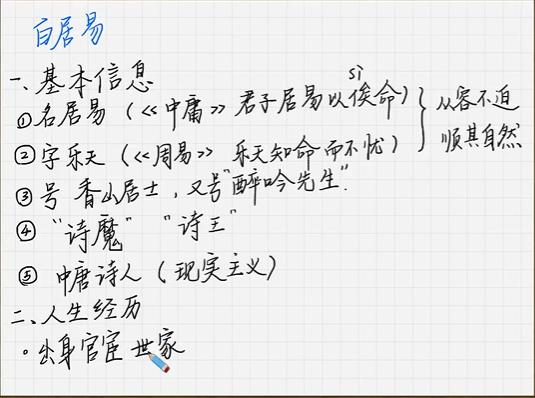 白居易
一、基本信息
sì
①名居易（《中庸》君子居易以俟命）
②字乐天（《周易》乐天知命而不忧）
从容不迫
顺其自然
③号 香山居士，又号"醉吟先生".
④"诗魔" "诗王"
⑤ 中唐诗人（现实主义）
二、人生经历
·出身官宦世家